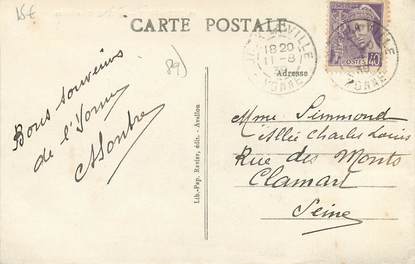 15€
CARTE POSTALE
89)
18 20
11-8
YONNE
POSTES
40
Adresse
Bons souvenirs
de l'Yonne
Lib.-Pap. Revier, édit. - Avallon
Mme Simmond
Allée Charles Louis
Rue des Monts
Clamart
Seine